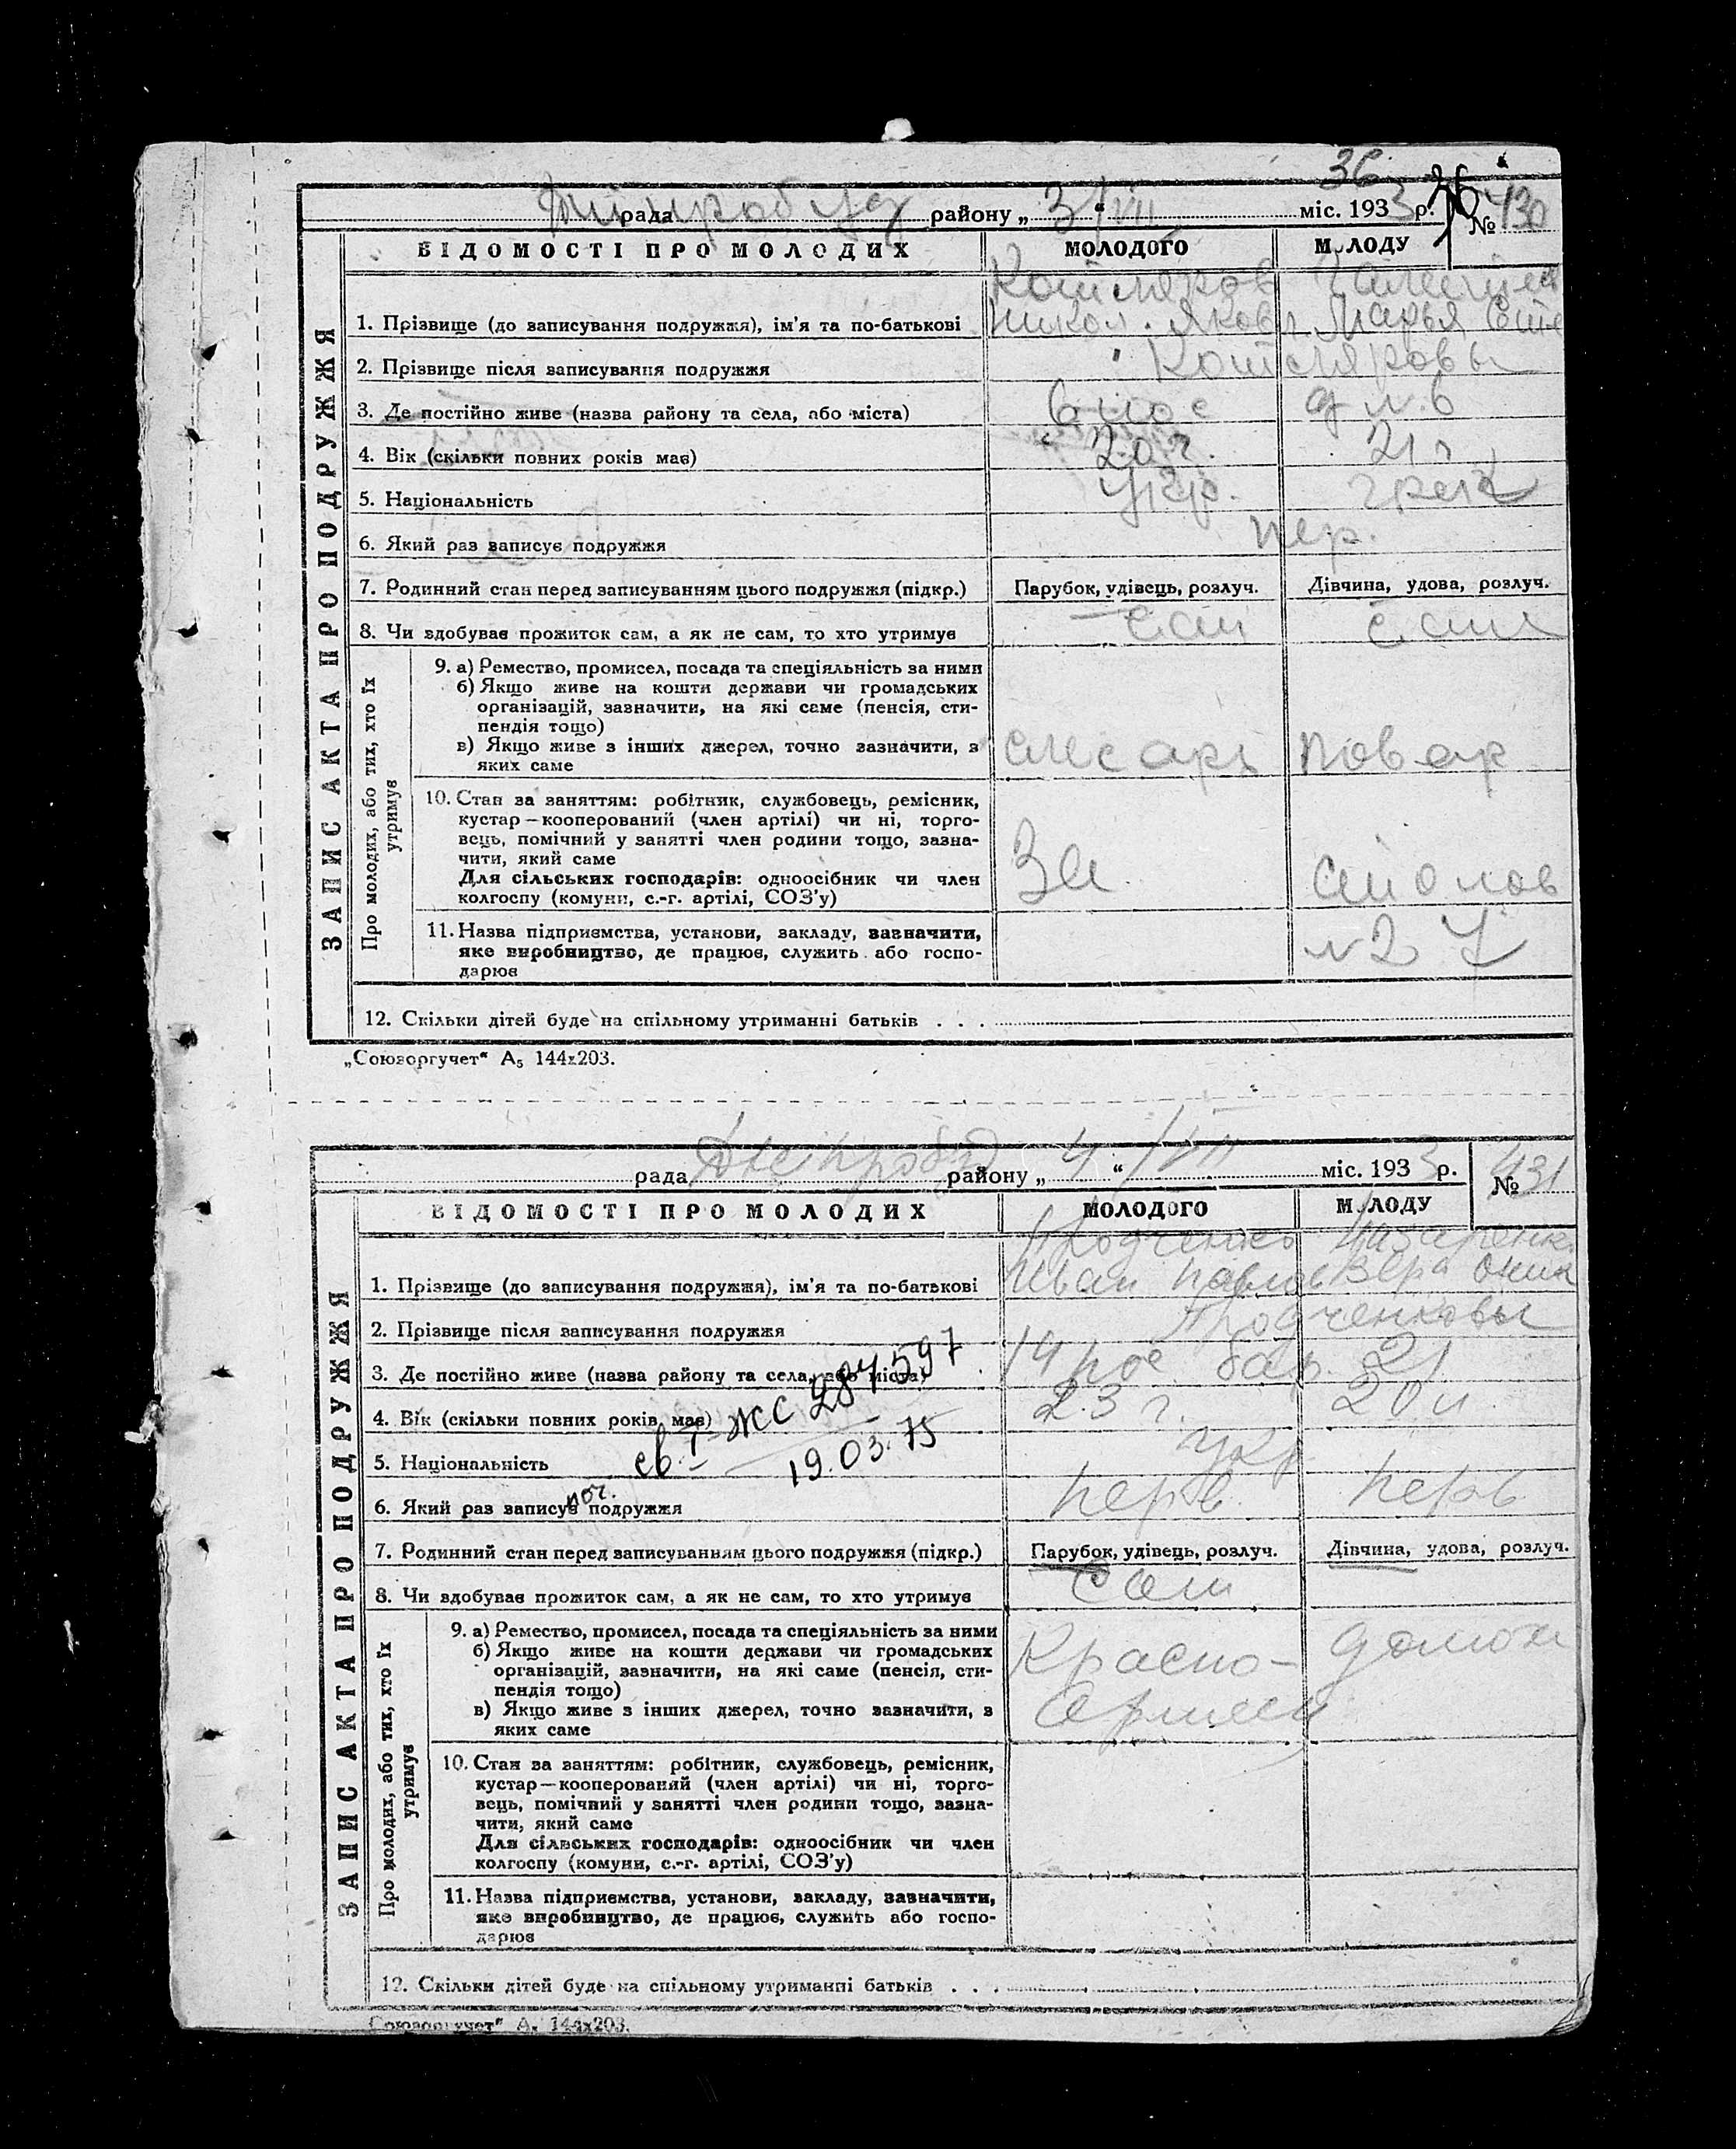 36
рада району „ 3/VII “ міс. 1933 р. 36 № 430
ВІДОМОСТІ ПРО МОЛОДИХ МОЛОДОГО МОЛОДУ
ЗАПИС АКТА ПРО ПОДРУЖЖЯ
1. Прізвище (до записування подружжя), ім'я та по-батькові Марья
2. Прізвище після записування подружжя Котляровы
3. Де постійно живе (назва району та села, або міста) 6 пос д N. 6
4. Вік (скільки повних років має) 20 г. 21 г
5. Національність Укр. грек
6. Який раз записує подружжя пер.
7. Родинний стан перед записуванням цього подружжя (підкр.) Парубок, удівець, розлуч. Дівчина, удова, розлуч.
8. Чи здобуває прожиток сам, а як не сам, то хто утримує Сам Сама
Про молодих, або тих, хто їх утримує
9. а) Ремество, промисел, посада та спеціяльність за ними
б) Якщо живе на кошти держави чи громадських
організацій, зазначити, на які саме (пенсія, сти-
пендія тощо)
в) Якщо живе з інших джерел, точно зазначити, з слесарь повар
яких саме
10. Стан за заняттям: робітник, службовець, ремісник,
кустар—кооперований (член артілі) чи ні, торго-
вець, помічний у занятті член родини тощо, зазна-
чити, який саме
Для сільських господарів: одноосібник чи член столов
колгоспу (комуни, с.-г. артілі, СОЗ'у)
11. Назва підприємства, установи, закладу, зазначити,
яке виробництво, де працює, служить або госпо-
дарює
12. Скільки дітей буде на спільному утриманні батьків . . .
„Союзоргучет“ А₅ 144х203.
рада району „ 4 “ /VII міс. 1933 р. № 431
ВІДОМОСТІ ПРО МОЛОДИХ МОЛОДОГО МОЛОДУ
ЗАПИС АКТА ПРО ПОДРУЖЖЯ
1. Прізвище (до записування подружжя), ім'я та по-батькові Иван Павлов Вера
2. Прізвище після записування подружжя
3. Де постійно живе (назва району та села, або міста) 14 пос бар. 21
4. Вік (скільки повних років має) 23 г. 20 л
5. Національність Укр
6. Який раз записує подружжя перв. перв
св. I-ЖС 284597
19.03.75
поч.
7. Родинний стан перед записуванням цього подружжя (підкр.) Парубок, удівець, розлуч. Дівчина, удова, розлуч.
8. Чи здобуває прожиток сам, а як не сам, то хто утримує Сам
Про молодих, або тих, хто їх утримує
9. а) Ремество, промисел, посада та спеціяльність за ними
б) Якщо живе на кошти держави чи громадських Красно- домохоз
організацій, зазначити, на які саме (пенсія, сти-
пендія тощо)
в) Якщо живе з інших джерел, точно зазначити, з армеец
яких саме
10. Стан за заняттям: робітник, службовець, ремісник,
кустар—кооперований (член артілі) чи ні, торго-
вець, помічний у занятті член родини тощо, зазна-
чити, який саме
Для сільських господарів: одноосібник чи член
колгоспу (комуни, с.-г. артілі, СОЗ'у)
11. Назва підприємства, установи, закладу, зазначити,
яке виробництво, де працює, служить або госпо-
дарює
12. Скільки дітей буде на спільному утриманні батьків . . .
Союзоргучет“ А₅ 144х203.